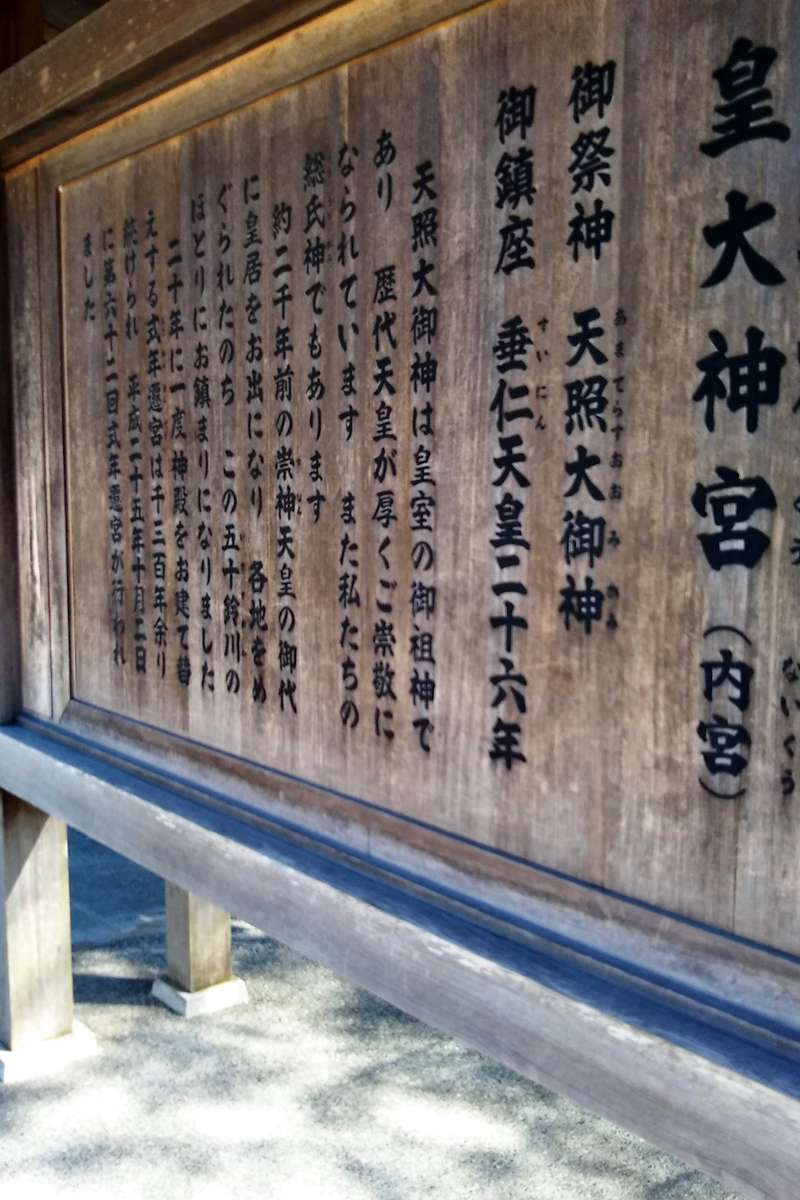 皇大神宮（内宮）
ないくう
御祭神　天照大御神
あまてらすおおみかみ
御鎮座　垂仁天皇二十六年
すいにん
天照大御神は皇室の御祖神で
あり　歴代天皇が厚くご崇敬に
なられています　また私たちの
総氏神でもあります
約二千年前の崇神天皇の御代
に皇居をお出になり　各地をめ
ぐられたのち　この五十鈴川の
ほとりにお鎮まりになりました
二十年に一度神殿をお建て替
えする式年遷宮は千三百年余り
続けられ　平成二十五年十月二日
に第六十二回式年遷宮が行われ
ました